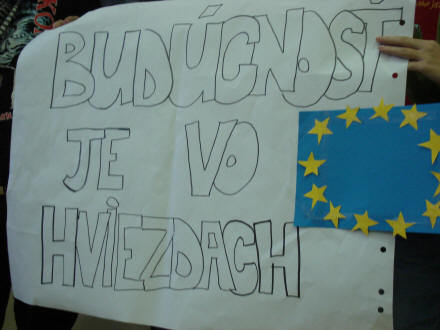 BUDÚCNOSŤ
JE VO
HVIEZDACH